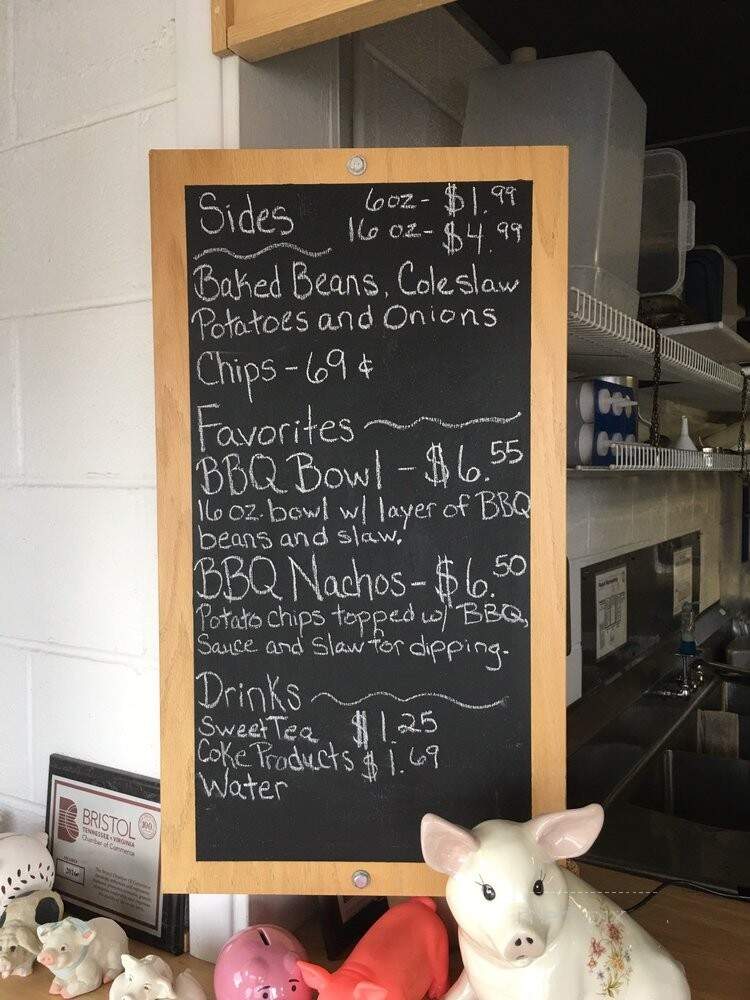 Sides
6oz - $1.99
16 oz - $4.99
Baked Beans, Coleslaw
Potatoes and Onions
Chips - 69¢
Favorites
BBQ Bowl - $6.55
16 oz. bowl w/ layer of BBQ
beans and slaw.
BBQ Nachos - $6.50
Potato chips topped w/ BBQ,
Sauce and Slaw for dipping.
Drinks
Sweet Tea $1.25
Coke Products $1.69
Water
BRISTOL
TENNESSEE • VIRGINIA
Chamber of Commerce